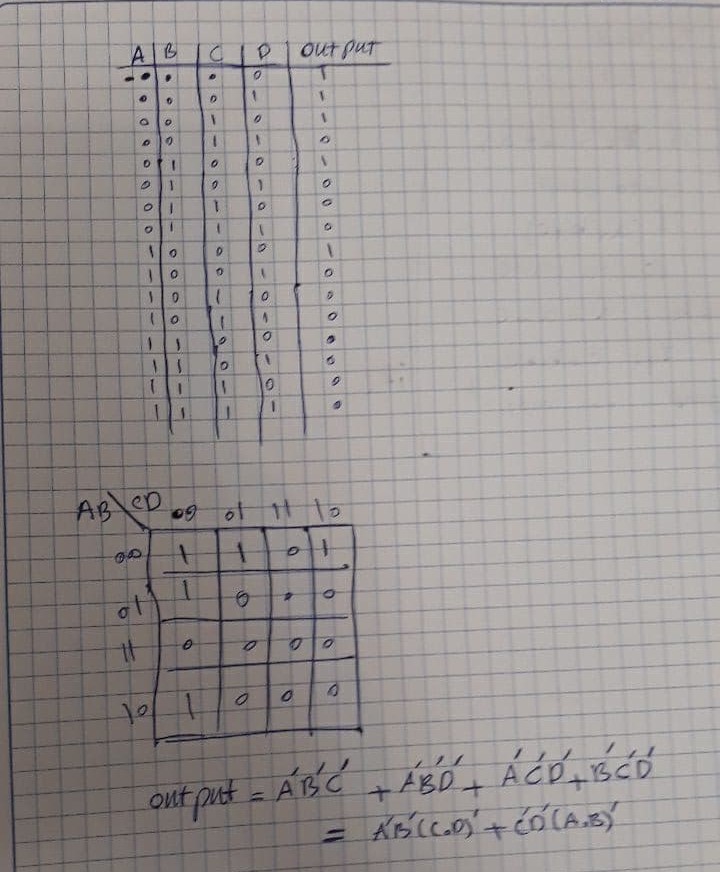 A B C D output
0 0 0 0 1
0 0 0 1 1
0 0 1 0 1
0 0 1 1 0
0 1 0 0 1
0 1 0 1 0
0 1 1 0 0
0 1 1 1 0
1 0 0 0 1
1 0 0 1 0
1 0 1 0 0
1 0 1 1 0
1 1 0 0 0
1 1 0 1 0
1 1 1 0 0
1 1 1 1 0
AB\CD 00 01 11 10
00 1 1 0 1
01 1 0 0 0
11 0 0 0 0
10 1 0 0 0
output = A'B'C' + A'B'D' + A'C'D' + B'C'D'
= A'B'(C.D)' + C'D'(A.B)'